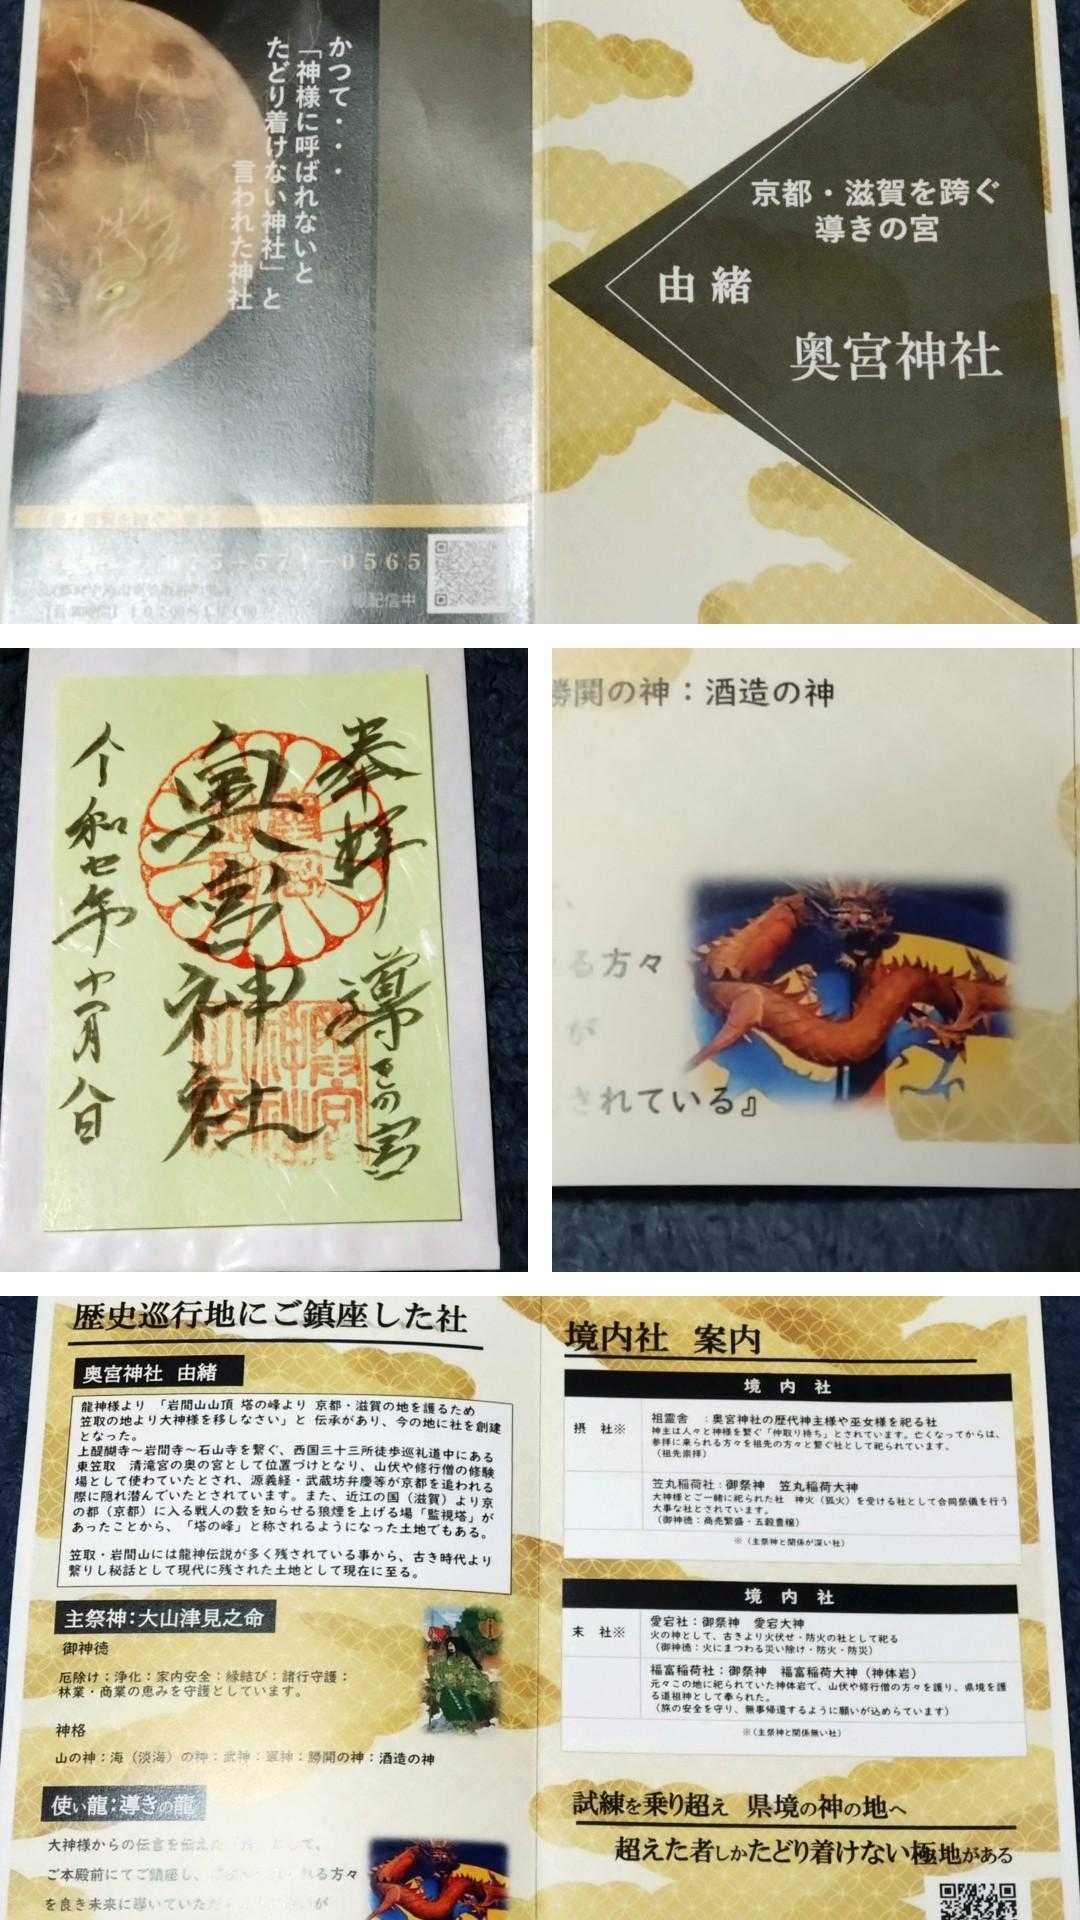 かつて・・・
「神様に呼ばれないと
たどり着けない神社」と
言われた神社
京都・滋賀を跨ぐ
導きの宮
由緒
奥宮神社
0565
配信中
奉拝 導きの宮
奥宮神社
令和七年十一月八日
勝鬨の神：酒造の神
る方々
が
されている』
歴史巡行地にご鎮座した社
奥宮神社 由緒
龍神様より 「岩間山山頂 塔の峰より 京都・滋賀の地を護るため
笠取の地より大神様を移しなさい」と 伝承があり、今の地に社を創建
となった。
上醍醐寺～岩間寺～石山寺を繋ぐ、西国三十三所徒歩巡礼道中にある
東笠取 清滝宮の奥の宮として位置づけとなり、山伏や修行僧の修験
場として使わていたとされ、源義経・武蔵坊弁慶等が京都を追われる
際に隠れ潜んでいたとされています。また、近江の国（滋賀）より京
の都（京都）に入る戦人の数を知らせる狼煙を上げる場「監視塔」が
あったことから、「塔の峰」と称されるようになった土地でもある。
笠取・岩間山には龍神伝説が多く残されている事から、古き時代より
繋りし秘話として現代に残された土地として現在に至る。
主祭神：大山津見之命
御神徳
厄除け：浄化：家内安全：縁結び：諸行守護：
林業・商業の恵みを守護としています。
神格
山の神：海（淡海）の神：武神：軍神：勝鬨の神：酒造の神
使い龍：導きの龍
大神様からの伝言を伝えた
ご本殿前にてご鎮座し、 る方々
を良き未来に導いていただ が
境内社 案内
境内社
摂社※
祖霊舎 ：奥宮神社の歴代神主様や巫女様を祀る社
神主は人々と神様を繋ぐ「仲取り持ち」とされています。亡くなってからは、
参拝に来られる方々を祖先の方々と繋ぐ社として祀られています。
（祖先崇拝）
笠丸稲荷社：御祭神 笠丸稲荷大神
大神様とご一緒に祀られた社 神火（狐火）を受ける社として合同祭儀を行う
大事な社とされています。
（御神徳：商売繁盛・五穀豊穣）
※（主祭神と関係が深い社）
境内社
末社※
愛宕社：御祭神 愛宕大神
火の神として、古きより火伏せ・防火の社として祀る
（御神徳：火にまつわる災い除け・防火・防災）
福富稲荷社：御祭神 福富稲荷大神（神体岩）
元々この地に祀られていた神体岩で、山伏や修行僧の方々を護り、県境を護
る道祖神として奉られた。
（旅の安全を守り、無事帰還するように願いが込められています）
※（主祭神と関係無い社）
試練を乗り超え 県境の神の地へ
超えた者しかたどり着けない極地がある